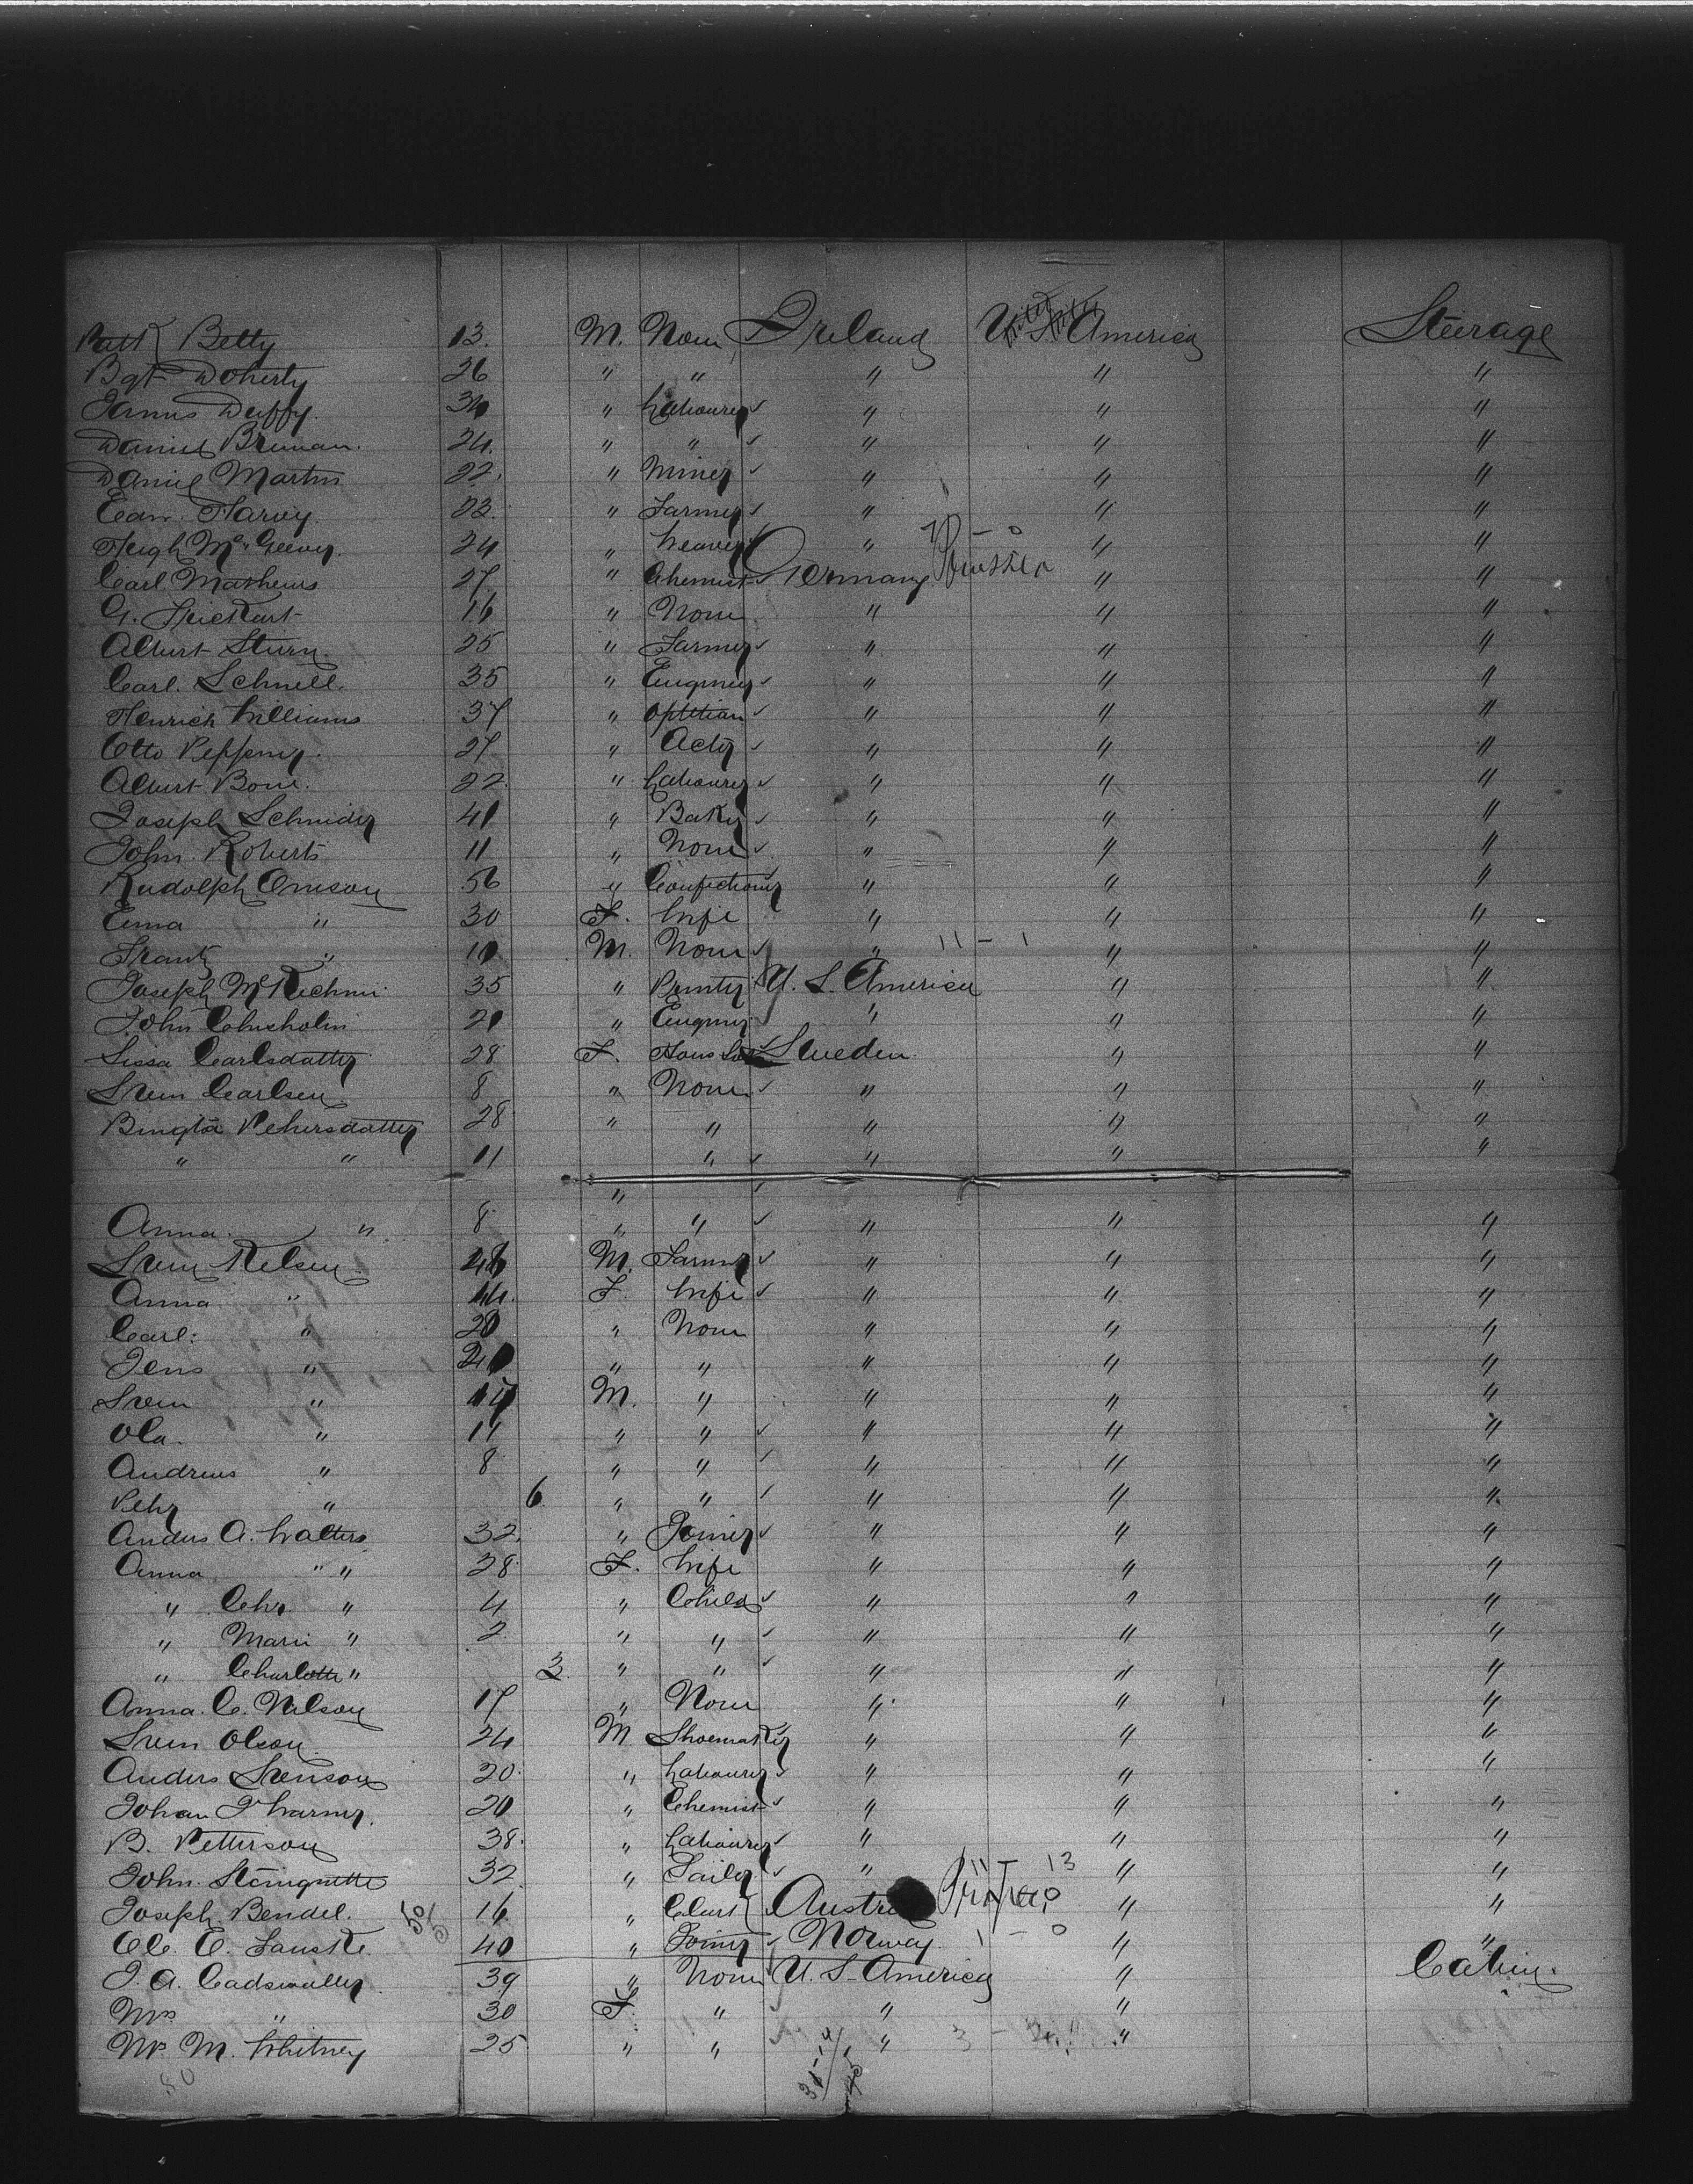 Patk Betty 13. M. None Ireland U.S. America Steerage
Bgt Doherty 26 " " " " "
James Duffy. 30 " Labourer " " "
Daniel Brennan. 24. " " " " "
Daniel Martin 22. " Miner " " "
Edw. Harvey. 23. " Farmer " " "
Hugh McGeever. 24 " Weaver " " "
Carl Mathews 27 " Chemist Germany Prussia " "
G. 16 " None " " "
Albert Sturn. 25 " Farmer " " "
Carl. Schnell. 35 " Engineer " " "
Henrich Williams 37 " Optitian " " "
Otto 27 " Actor " " "
Albert Bone. 22. " Labourer " " "
Joseph Schneider 41 " Baker " " "
John. Roberts 11 " None " " "
Rudolph 56 " Confectioner " " "
Emma " 30 F. Wife " " "
Frank " 10 M. None " 11 - 1 " "
Joseph 35 " Printer U. S. America " "
John Chisholm 21 " Engineer " " "
Sissa Carlsdatter 28 F. Sweden. " "
Sven Carlsen 8 " None " " "
Bengta Pehersdatter 28 " " " " "
" " 11 " " " "
"
Anna. " 8 " " " " "
Sven Nelsen. 48 M. Farmer " " "
Anna " 44. F. Wife " " "
Carl: " 20 " None " " "
Jens " " " " " "
Sven " 17 M. " " " "
Ola. " 14 " " " " "
Andreas " 8 " " " " "
Pehr " 6 " " " " "
Anders A. Walters 32. " Joiner " " "
Anna " " 28 F. Wife " " "
" Chr. " 4 " Child " " "
" Marie " 2 " " " " "
" Charlotte " 3. " " " " "
Anna. C. Nelson 17 " None " " "
Sven Olson 24 M Shoemaker " " "
Anders Svenson 20. " Labourer " " "
Johan F. Warner. 20 " Chemist " " "
B. Petterson 38. " Labourer " " "
John. 32 " Sailor " 11 - 13 " "
Joseph Bendel. 16 " Clerk Austria " "
Ole. E. Fauske 40 " Joiner Norway. 1 - 0 " "
J. A. Cadwaller 39 " None U. S. America " Cabin.
Mrs " 30 F. " " "
Mrs M. Whitney 25 " " " "